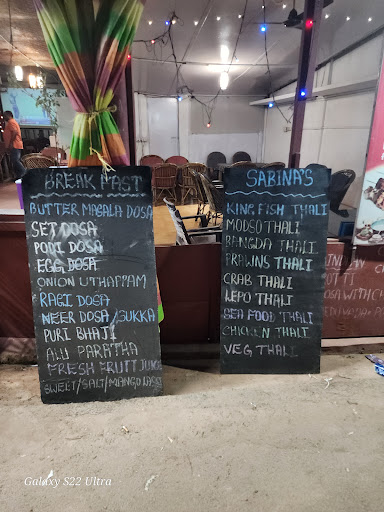 BREAK FAST
BUTTER MASALA DOSA
SET DOSA
PODI DOSA
EGG DOSA
ONION UTHAPPAM
RAGI DOSA
NEER DOSA / SUKKA
PURI BHAJI
ALU PARATHA
FRESH FRUIT JUICE
SWEET/SALT/MANGO LASSI
SABINA'S
KING FISH THALI
MODSO THALI
BANGDA THALI
PRAWNS THALI
CRAB THALI
LEPO THALI
SEA FOOD THALI
CHICKEN THALI
VEG THALI
Galaxy S22 Ultra